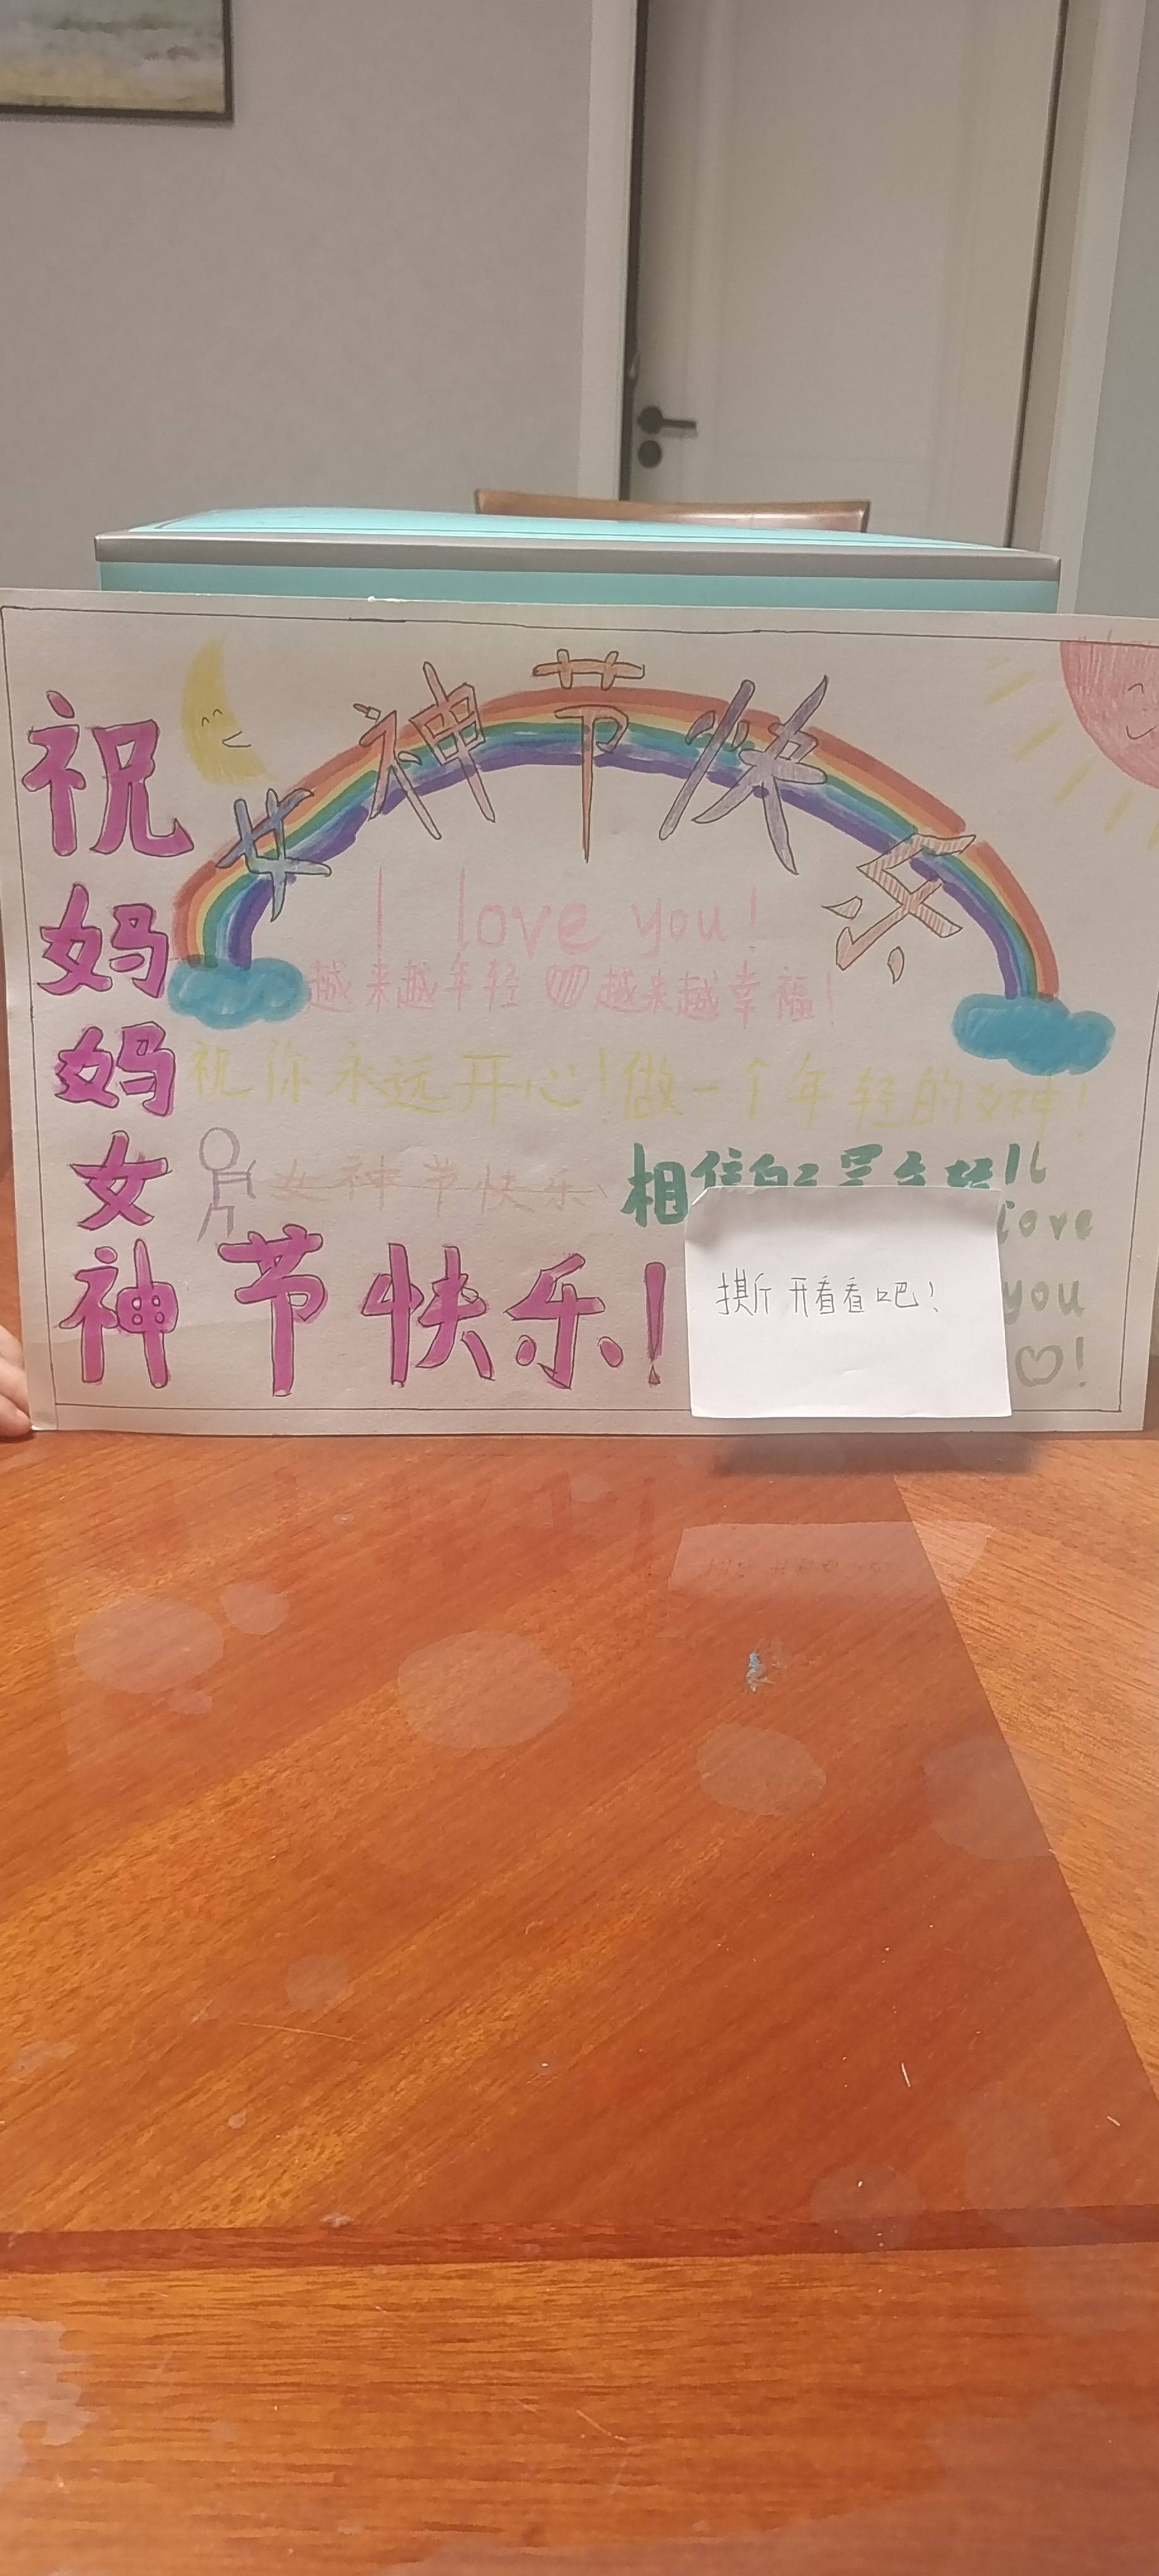 女神节快乐
祝妈妈女神节快乐!
I love you!
越来越年轻 越来越幸福!
祝你永远开心!做一个年轻的女神!
女神节快乐
相信自己
I love you !
撕开看看吧!